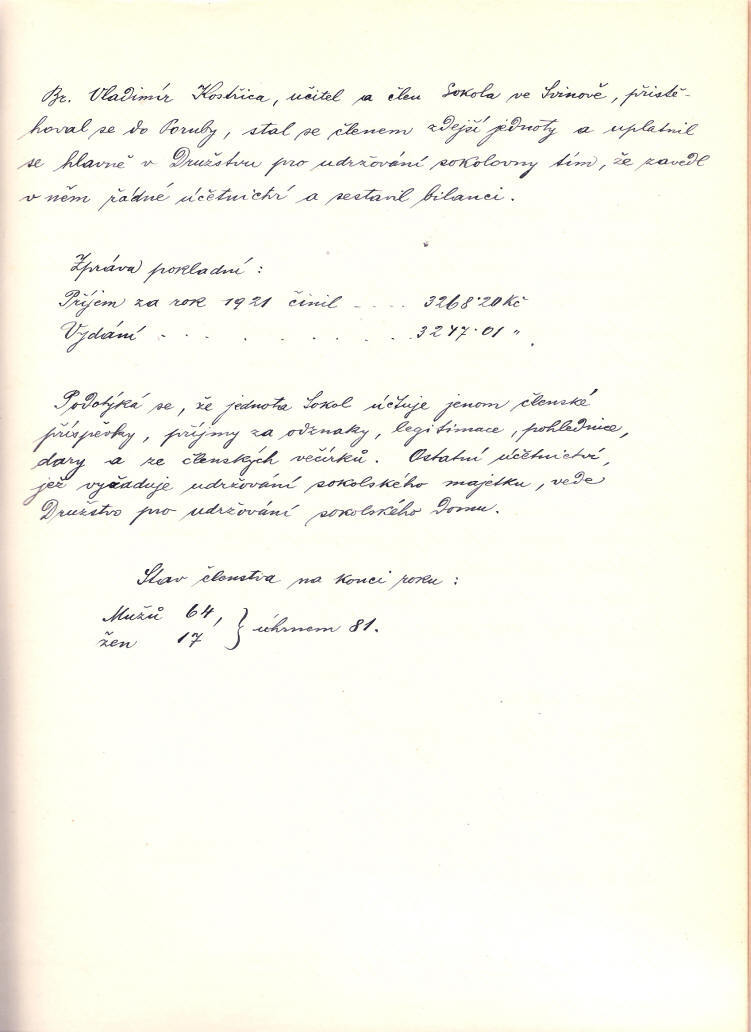 Br. Vladimír Kostřica, učitel a člen Sokola ve Svinově, přistě-
hoval se do Poruby, stal se členem zdejší jednoty a uplatnil
se hlavně v Družstvu pro udržování sokolovny tím, že zavedl
v něm řádné účetnictví a sestavil bilanci.
Zpráva pokladní:
Příjem za rok 1921 činil .... 3268·20 Kč
Vydání . . . . . . . . . 3247·01 " .
Podotýká se, že jednota Sokol účtuje jenom členské
příspěvky, příjmy za odznaky, legitimace, pohlednice,
dary a ze členských večírků. Ostatní účetnictví,
jež vyžaduje udržování sokolského majetku, vede
Družstvo pro udržování sokolského domu.
Stav členstva na konci roku:
Mužů 64,
žen 17 } úhrnem 81.